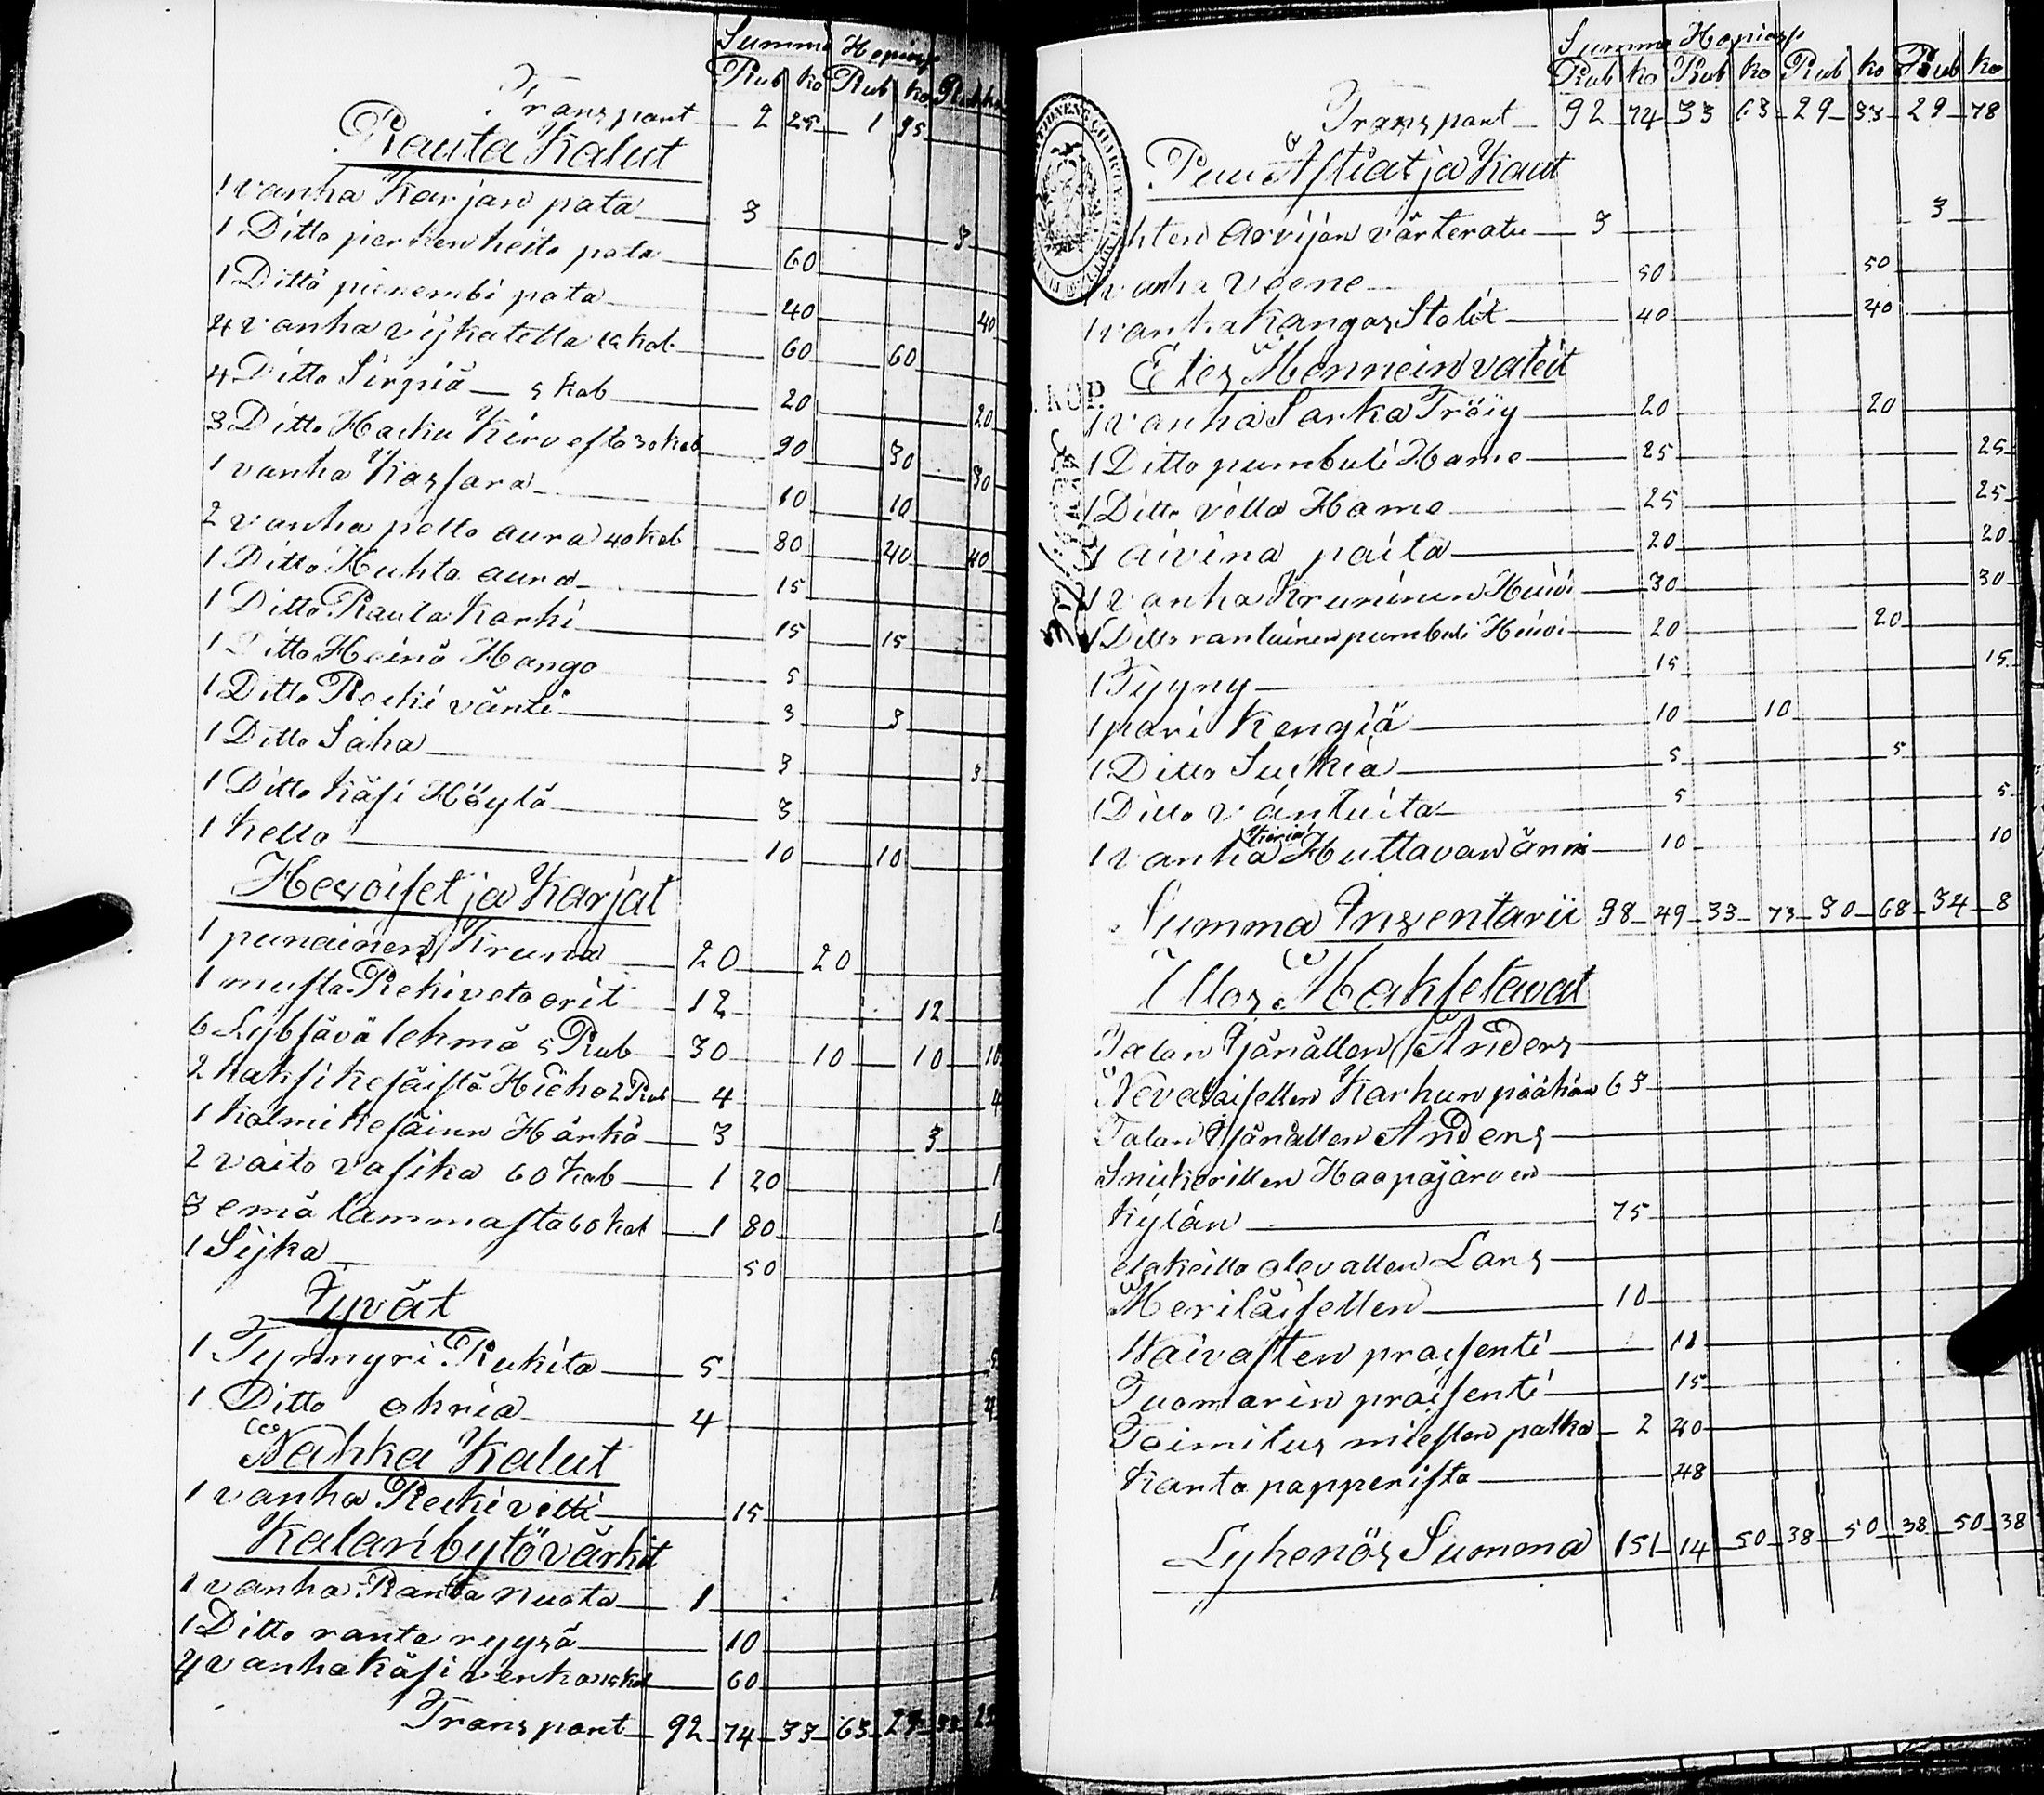 Summa Hopiass
Rub ko Rub ko Rub ko
Transport 2 25 1 95
Rauta Kalut
1 vanha Karjan pata 3 3
1 Ditto pierken keito pata 60
1 Ditto pienembi pata 40 40
4 vanha vijkatetta 15 kob 60 60
4 Ditto Sirpiä 5 kob 20 20
3 Ditto Hacku Kirvestä 30 kob 90 30 30
1 vanha Kassara 10 10
2 vanha pello aura 40 kob 80 40 40
1 Ditto Kuhta aura 15
1 Ditto Rauta Karhi 15 15
1 Ditto Heinä Hango 5
1 Ditto Recki vänti 3 3
1 Ditto Saha 3 3
1 Ditto Käsi Höylä 3
1 Kello 10 10
Hevoiset ja Karjat
1 punainen Kruna 20 20
1 musta Rekiveto orit 12 12
6 Lybsävä lehmä 5 Rub 30 10 10 10
2 kaksi kesäistä Hieho 2 Rub 4 4
1 kolmi kesäinn Härkä 3 3
2 vaito vasika 60 kob 1 20 1
3 emä lammasta 60 kob 1 80 1
1 Sijka 50
Jyvät
1 Tynnyri Rukita 5 5
1 Ditto ohria 4 4
Nahka Kalut
1 vanha Recki vilti 15
Kalanbytö värkit
1 vanha Ranta nuota 1 1
1 Ditto ranta ryysä 10
4 vanha käsi verkoa 15 kob 60
Transport 92 74 33 63 29 33 29
Summa Hopiass
Rub ko Rub ko Rub ko Rub ko
Transport 92 74 33 63 29 33 29 78
Puu Astiat ja Kaut
hten arvijän värteratu 3 3
1 vanha veene 50 50
1 vanha Kangas Stolit 40 40
Etes Mennein vateit
KOP.
1 vanha Sarka Tröiy 20 20
1 Ditto pumbuli Hame 25 25
1 Ditto villa Hame 25 25
1 aivina paita 20 20
1 vanha Kruninun Huivi 30 30
1 Ditto rantuinen pumbuli Huivi 20 20
1 Tyyny 15 15
1 pari Kengiä 10 10
1 Ditto Suckia 5 5
1 Ditto väntuita 5 5
1 vanha Kiria Huttavan änni 10 10
Summa Inventarii 98 49 33 73 30 68 34 8
Ulos Maksetavat
Talan Isänällen Anders
Nevalaisellen Karhun päähän 63
Talan Isänällen Anders
Snickerillen Haapajärven
kylän 75
eläkeillä olevallen Lars
Meriläisellen 10
Waivasten prosenti 11
Tuomarin prosenti 15
Toimitus miesten palka 2 40
Karta papperista 48
Lyhenös Summa 151 14 50 38 50 38 50 38